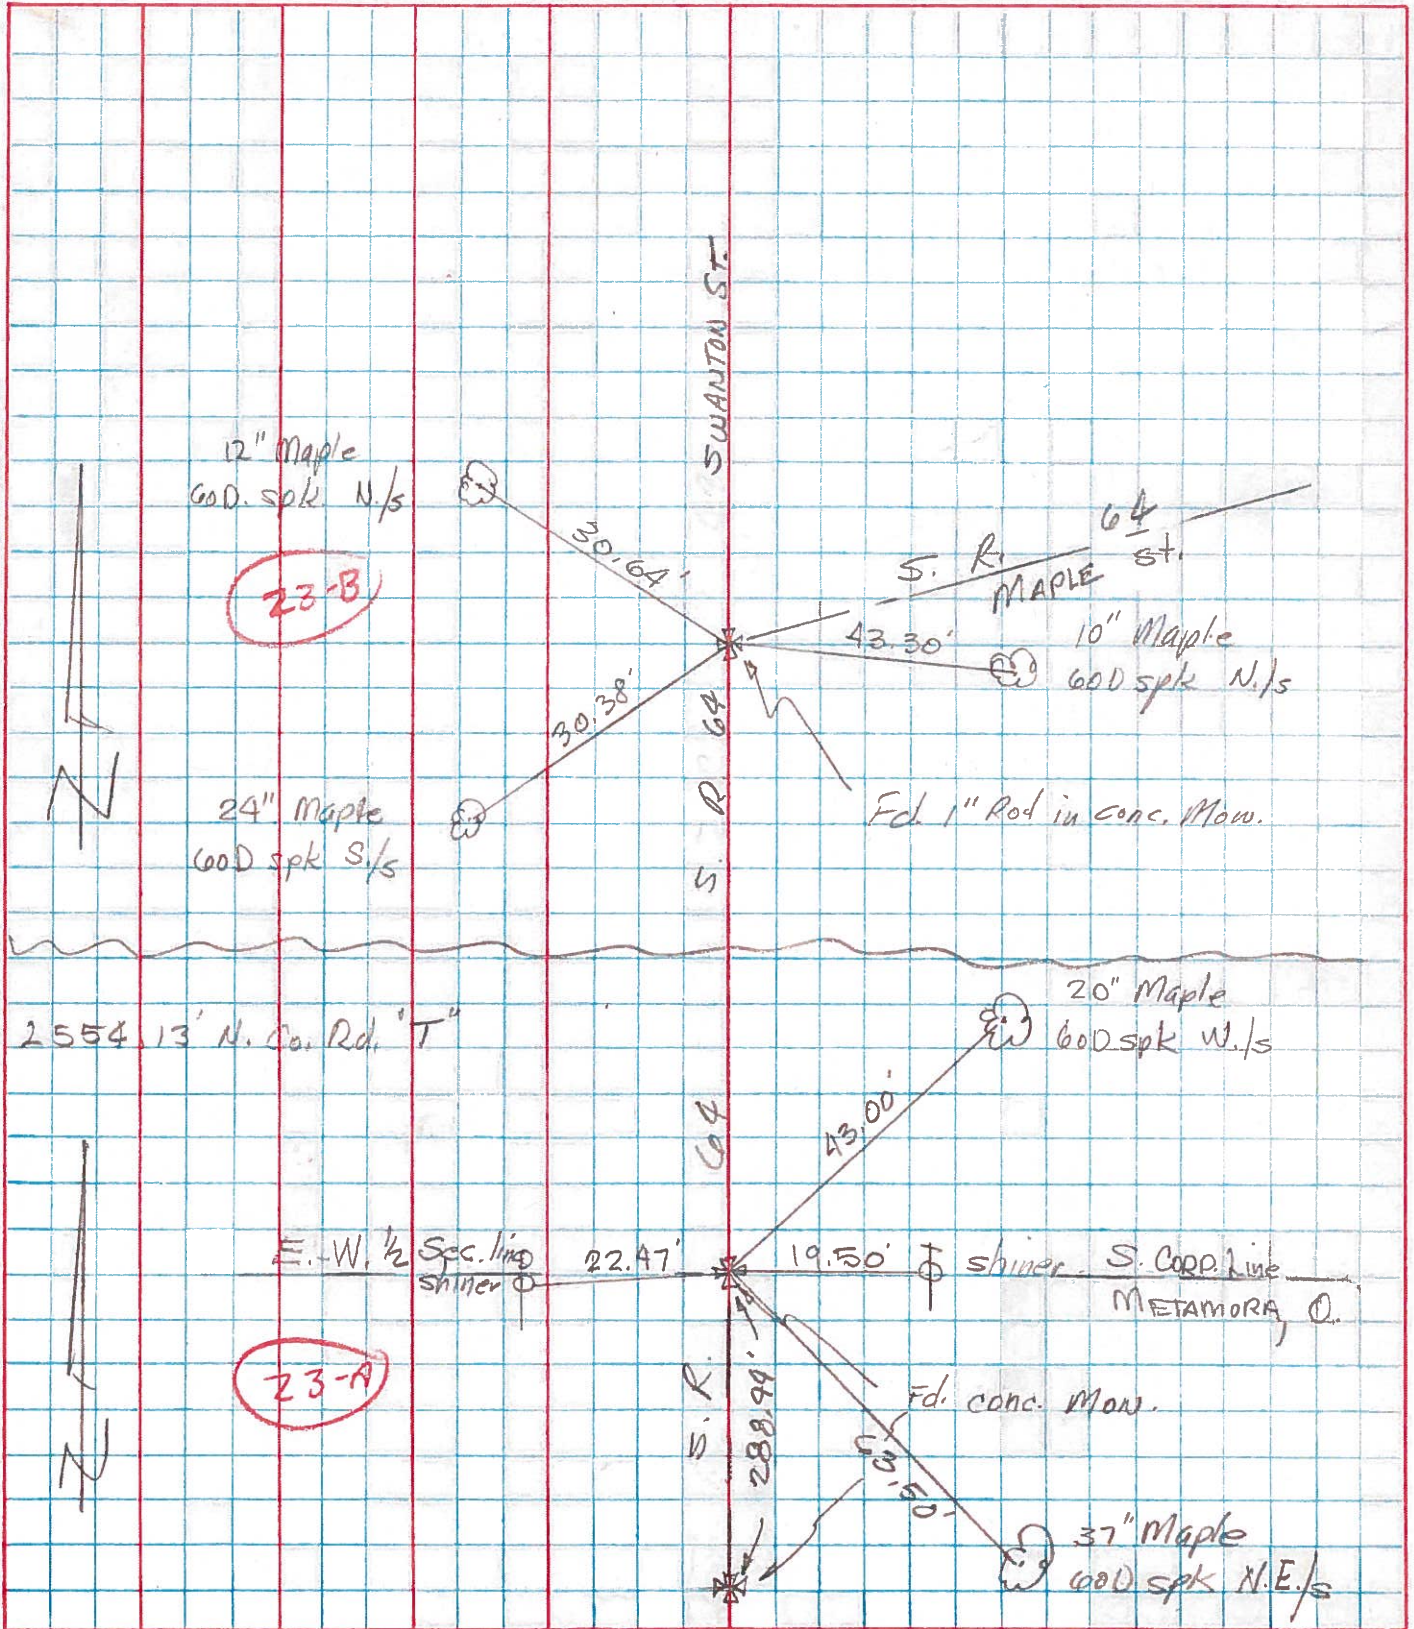 SWANTON ST.
12" Maple
60D. spk. N./s
30.64'
23-B
S. R. 64
MAPLE st.
43.30'
10" Maple
60D spk N./s
30.38'
S. R. 64
24" Maple
60D spk S./s
Fd. 1" Rod in conc. Mon.
N
2554.13' N. Co. Rd. "T"
20" Maple
60D spk W./s
43.00'
S. R. 64
E.-W. ½ Sec. line
shiner
22.47'
19.50'
shiner
S. CORP. Line
METAMORA, O.
23-A
288.44'
Fd. conc. Mon.
63.50'
N
37" Maple
60D spk N.E./s